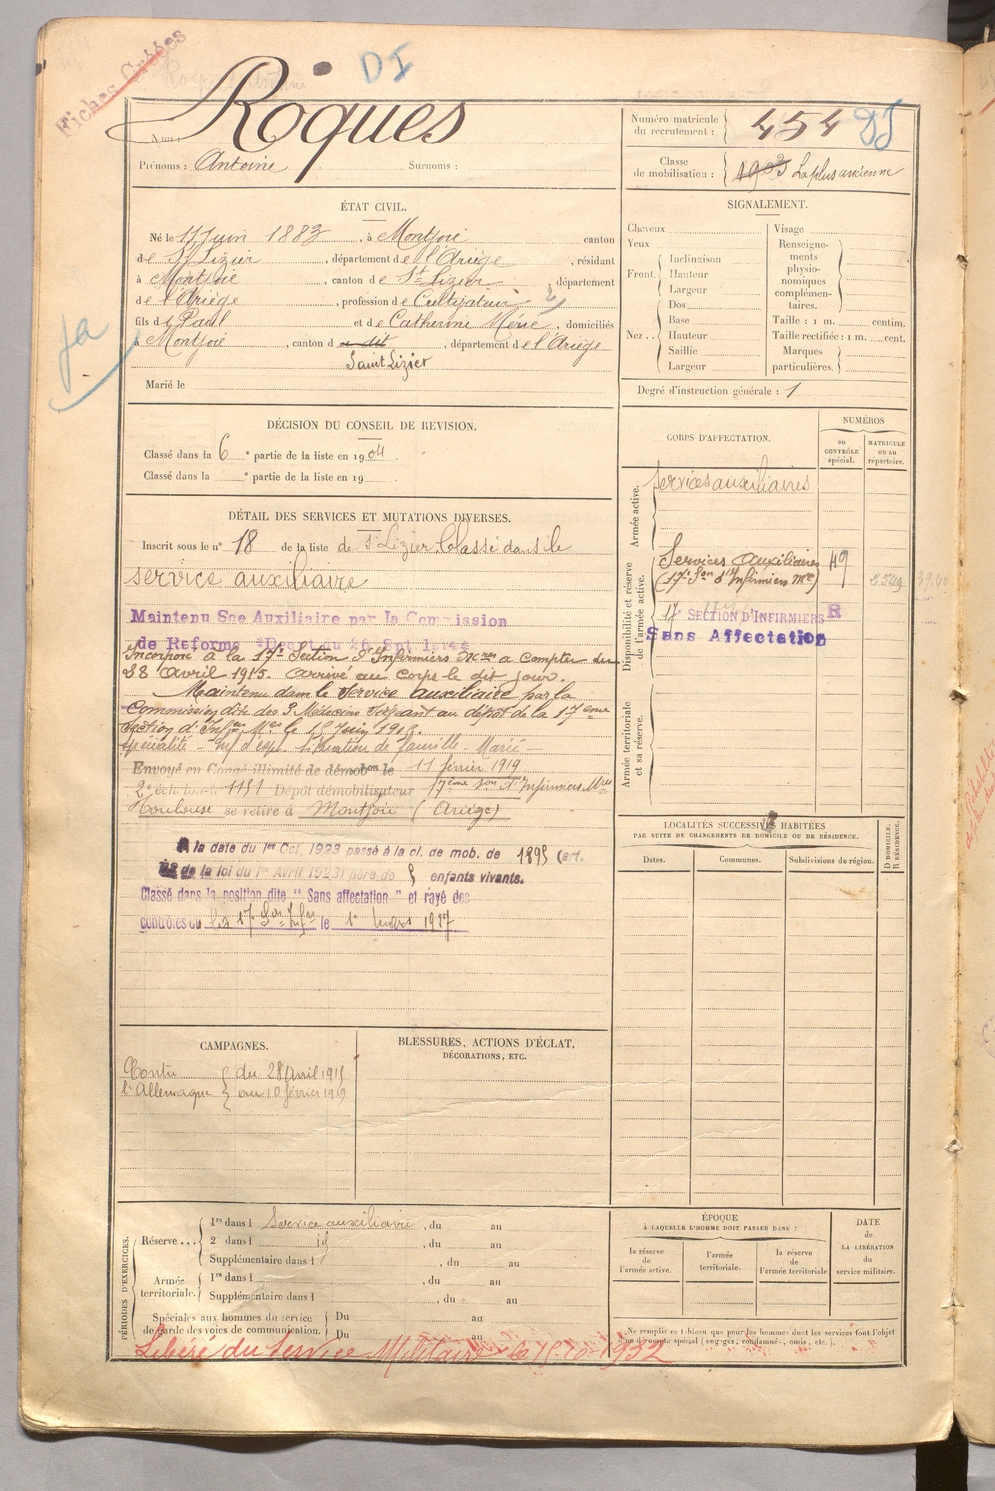 Fiches Grèées
DI
Nom : Roques
Prénoms : Antoine Surnoms :
Numéro matricule du recrutement : 454 DI
Classe de mobilisation : 1903 La plus ancienne
ÉTAT CIVIL.
Né le 17 Juin 1883, à Montjoie canton
de St Lizier, département de l'Ariège, résidant
à Montjoie, canton de St Lizier, département
de l'Ariège, profession de Cultivateur
fils de Paul et de Catherine Mérié, domiciliés
à Montjoie, canton d u dit, département de l'Ariège
Saint Lizier
Marié le
SIGNALEMENT.
Cheveux
Yeux
Front. Inclinaison
Hauteur
Largeur
Nez.. Dos
Base
Hauteur
Saillie
Largeur
Visage
Renseignements physionomiques complémentaires.
Taille : 1 m. centim.
Taille rectifiée : 1 m. cent.
Marques particulières.
Degré d'instruction générale : 1
DÉCISION DU CONSEIL DE REVISION.
Classé dans la 6e partie de la liste en 1904.
Classé dans la e partie de la liste en 19
DÉTAIL DES SERVICES ET MUTATIONS DIVERSES.
Inscrit sous le n° 18 de la liste de St Lizier. Classé dans le
service auxiliaire
Maintenu Sce Auxiliaire par la Commission
de Reforme
Incorporé à la 17e Section d'Infirmiers Mres a compter du
28 avril 1915. Arrivé au corps le dit jour.
Maintenu dans le Service auxiliaire par la
Commission dite des 3 Médecins siégeant au dépôt de la 17eme
Section d'Infers Mres le
Situation de famille - Marié -
Envoyé en Congé illimité de démobon le 11 février 1919
2e éch 1151 Dépôt démobilisateur 17eme Son d'Infirmiers Mres
Toulouse se retire à Montjoie (Ariège)
A la date du 1er Oct. 1923 passé à la cl. de mob. de 1895 (art.
de la loi du 1er Avril 1923) père de enfants vivants.
Classé dans la position dite " Sans affectation " et rayé des
contrôles de la 17e Son Infre le 1er
CORPS D'AFFECTATION.
NUMÉROS
au CONTRÔLE spécial.
MATRICULE ou au répertoire.
Armée active.
services auxiliaires
Disponibilité et réserve de l'armée active.
Services Auxiliaires 49
(17e Son d'Infirmiers Mre)
17 SECTION D'INFIRMIERS R
Sans Affectation
Armée territoriale et sa réserve.
LOCALITÉS SUCCESSIVES HABITÉES
PAR SUITE DE CHANGEMENTS DE DOMICILE OU DE RÉSIDENCE.
Dates. Communes. Subdivisions de région. D DOMICILE. R RÉSIDENCE.
CAMPAGNES.
Contre l'Allemagne
du 28 Avril 1915
au 10 février 1919
BLESSURES, ACTIONS D'ÉCLAT,
DÉCORATIONS, ETC.
PÉRIODES D'EXERCICES.
Réserve... 1re dans l Service auxiliaire, du au
2e dans l id, du au
Supplémentaire dans l, du au
Armée territoriale. 1re dans l, du au
Supplémentaire dans l, du au
Spéciales aux hommes du service de garde des voies de communication. Du au
Du au
ÉPOQUE
À LAQUELLE L'HOMME DOIT PASSER DANS :
la réserve de l'armée active.
l'armée territoriale.
la réserve de l'armée territoriale
DATE de LA LIBÉRATION du service militaire.
Ne remplir ce tableau que pour les hommes dont les services font l'objet
d'un décompte spécial (engagés, condamnés, omis, etc.).
Libéré du service Militaire le 15-10-1932